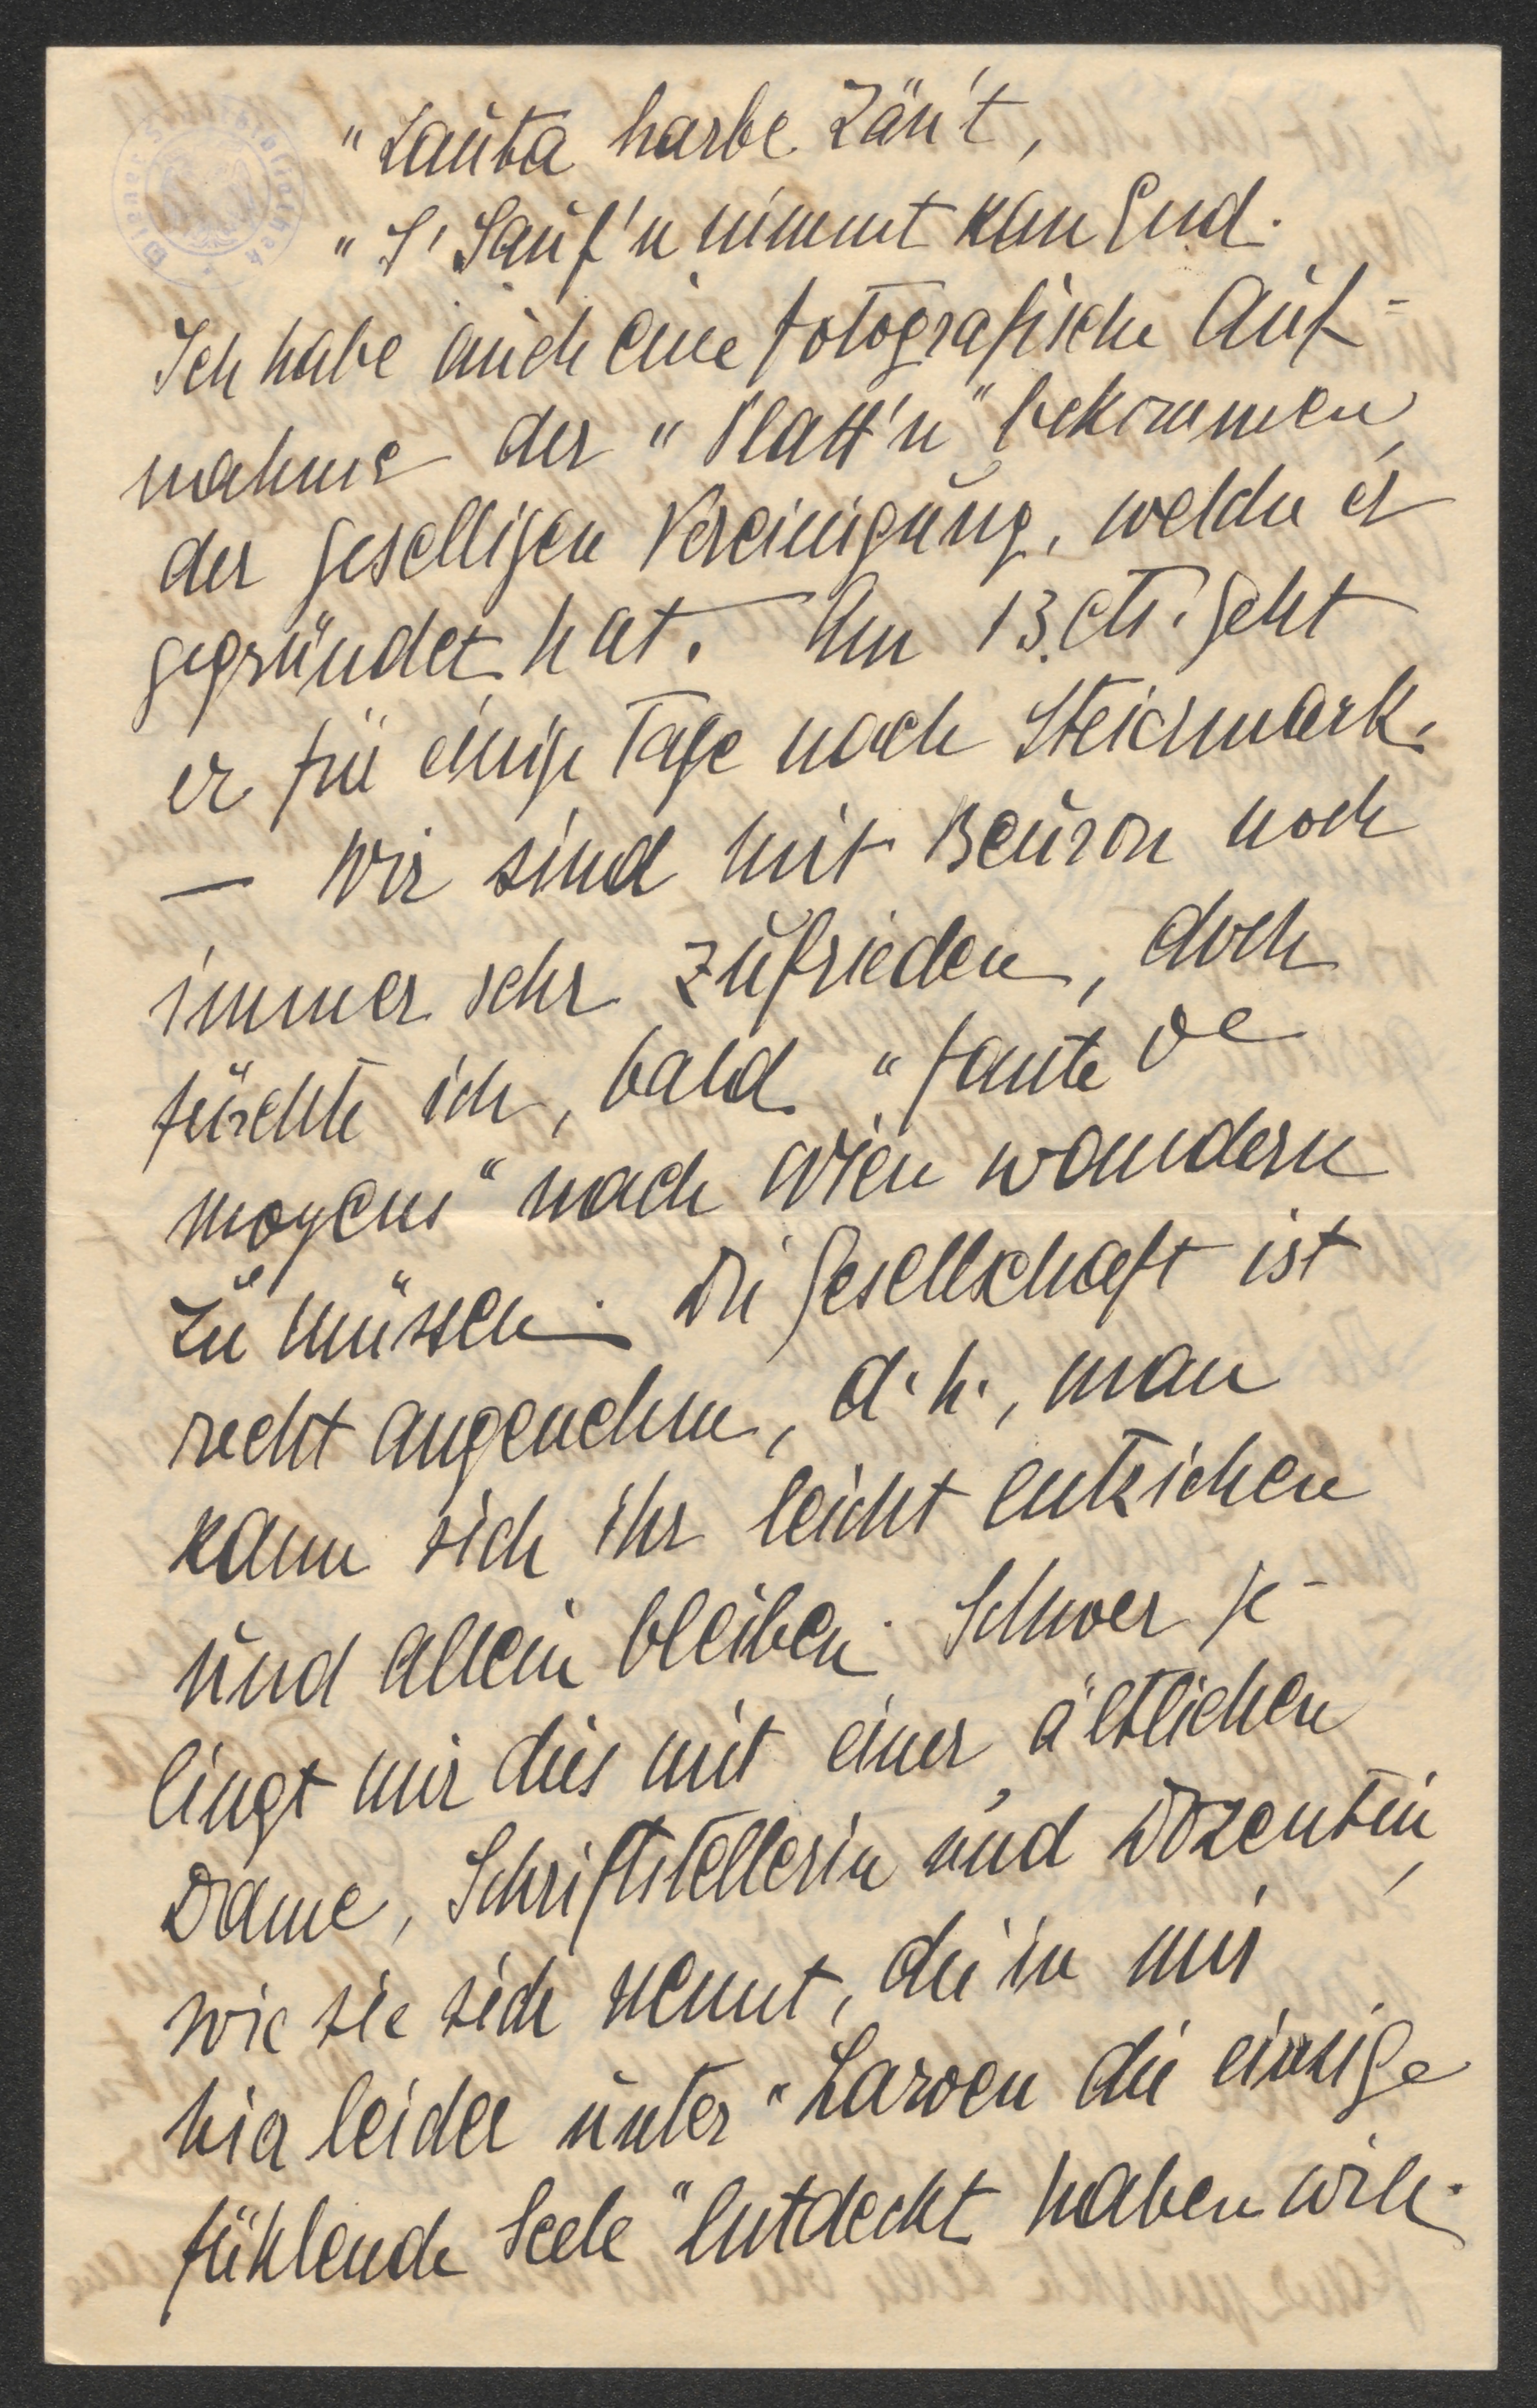 "Lauta harbe Län't,
"S' Sauf'n nimmt kan End.
Ich habe auch eine fotografische Auf=
nahme der "Platt'n" bekommen,
der geselligen Vereinigung, welche er
gegründet hat. Am 13. cts. geht
er für einige Tage nach Steiermark.
— Wir sind mit Beuron noch
immer sehr zufrieden, doch
fürchte ich, bald "faute de
moyens" nach Wien wandern
zu müssen. Die Gesellschaft ist
recht angenehm, d. h., man
kann sich ihr leicht entziehen
und allein bleiben. Schwer ge-
lingt mir dies mit einer ältlichen
Dame, Schriftstellerin und Dozentin,
wie sie sich nennt, die in mir
hier leider unter "Larven die einzige
fühlende Seele" entdeckt haben will.